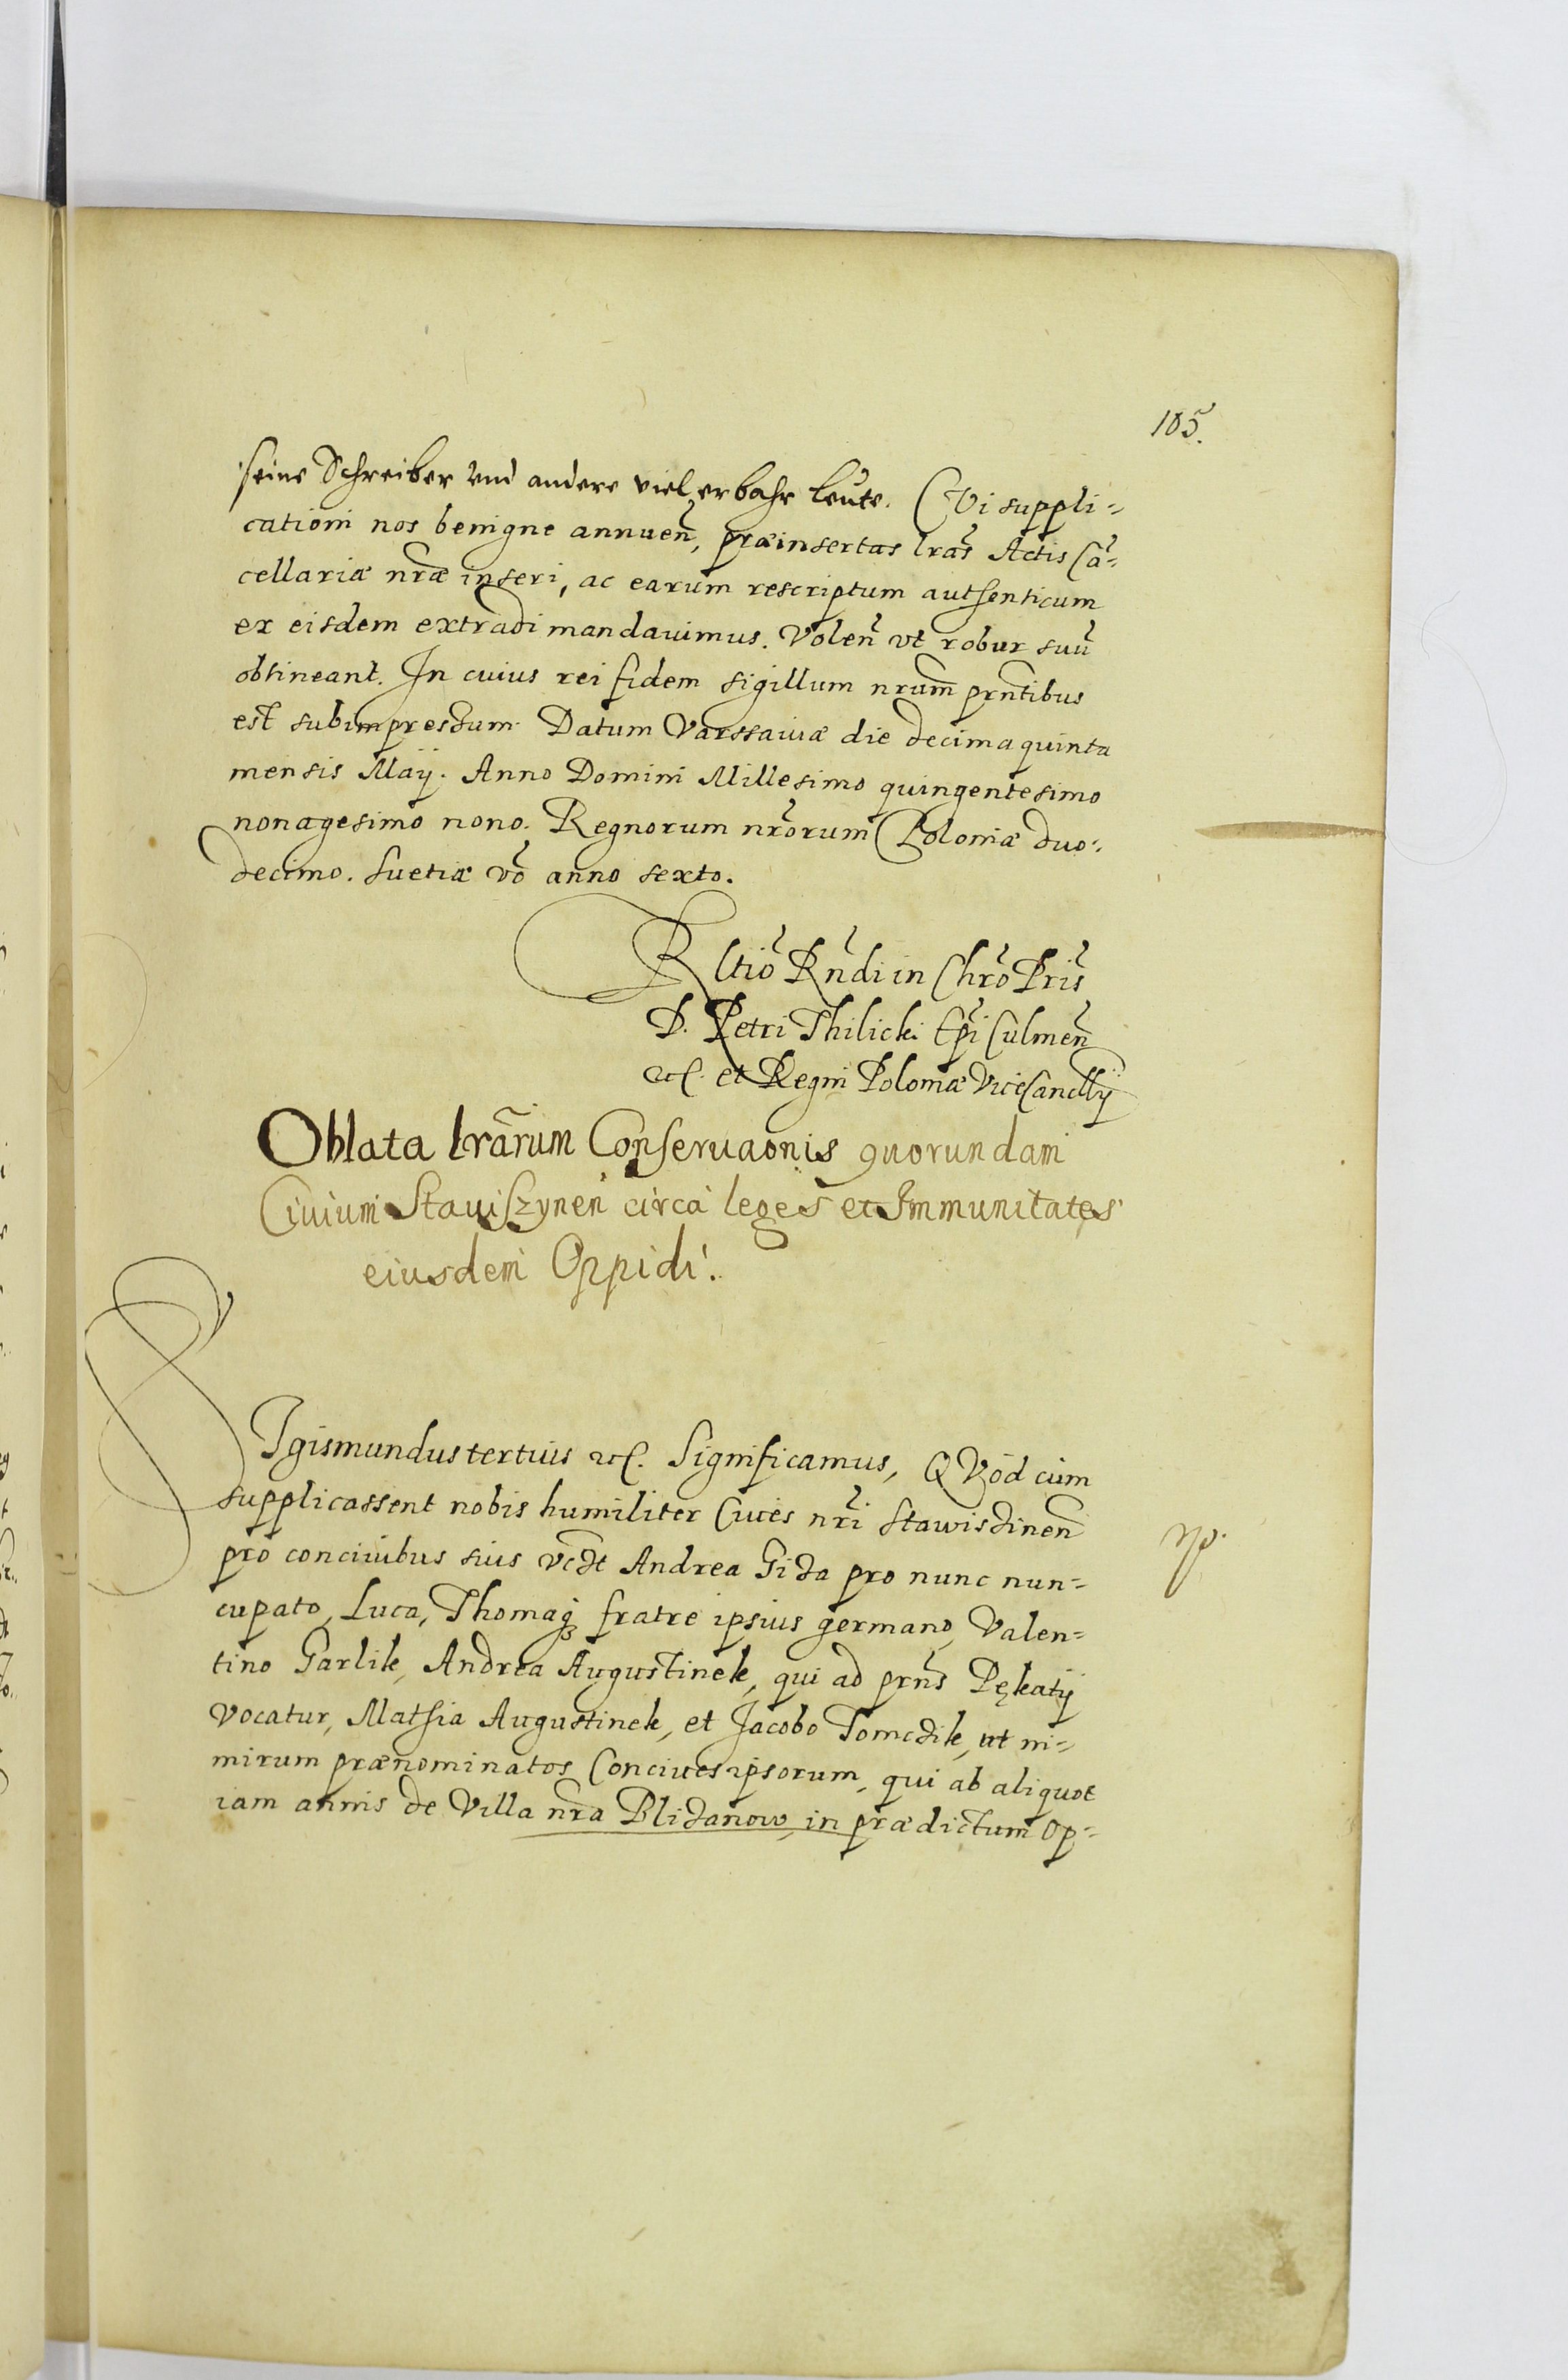 105.
seine Schreiber vnd andere viel erbahr leute. Cui suppli=
cationi nos benigne annuen̄, præinsertas lras̄ Actis Cā=
cellariæ nrǣ inseri, ac earum rescriptum authenticum
ex eisdem extradi mandauimus. Volen̄ vt robur suū
obtineant. In cuius rei fidem sigillum nrum̄ prn̄tibus
est subimpressum. Datum Varssauiæ die decima quinta
mensis Maÿ. Anno Domini Millesimo quingentesimo
nonagesimo nono. Regnorum nrōrum Poloniæ duo=
decimo. Suetiæ vō anno sexto.
Rltiō Rn̄di in Chrō Pris̄
D. Petri Thilicki Ep̄i Culmen̄
etc. et Regni Poloniæ ViceCancllÿ
Oblata lrārum Conseruaonis quorundam
Ciuium Stauiszynen̄ circa leges et Immunitates
eiusdem Oppidi.
SIgismundus tertius etc. Significamus, QVod cum
supplicassent nobis humiliter Ciues nrī Stawisczinen̄
pro conciuibus suis vczt Andrea Giza pro nunc nun=
cupato, Luca, Thomaqz fratre ipsius germano, Valen=
tino Garlik, Andrea Augustinek, qui ad prns̄ Pękatÿ
vocatur, Mathia Augustinek, et Jacobo Tomczik, ut ni=
mirum prænominatos Conciues ipsorum, qui ab aliquot
iam annis de Villa nra̅ Blizanow, in prædictum Op=